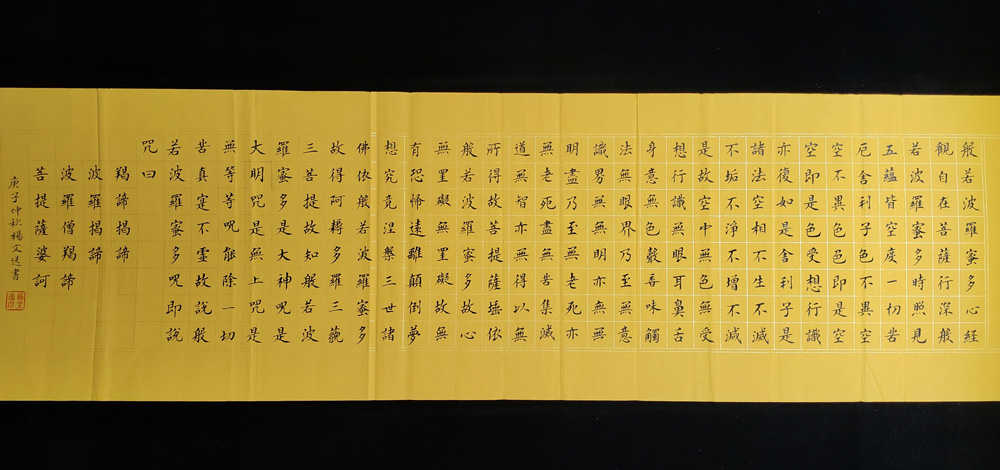 般若波羅蜜多心経
觀自在菩薩行深般
若波羅蜜多時照見
五蘊皆空度一切苦
厄舍利子色不異空
空不異色色即是空
空即是色受想行識
亦復如是舍利子是
諸法空相不生不滅
不垢不淨不增不減
是故空中無色無受
想行識無眼耳鼻舌
身意無色聲香味觸
法無眼界乃至無意
識界無無明亦無無
明盡乃至無老死亦
無老死盡無苦集滅
道無智亦無得以無
所得故菩提薩埵依
般若波羅蜜多故心
無罣礙無罣礙故無
有恐怖遠離顛倒夢
想究竟涅槃三世諸
佛依般若波羅蜜多
故得阿耨多羅三藐
三菩提故知般若波
羅蜜多是大神咒是
大明咒是無上咒是
無等等咒能除一切
苦真寔不虛故說般
若波羅蜜多咒即說
咒曰
羯諦揭諦
波羅揭諦
波羅僧羯諦
菩提薩婆訶
庚子仲秋楊文書